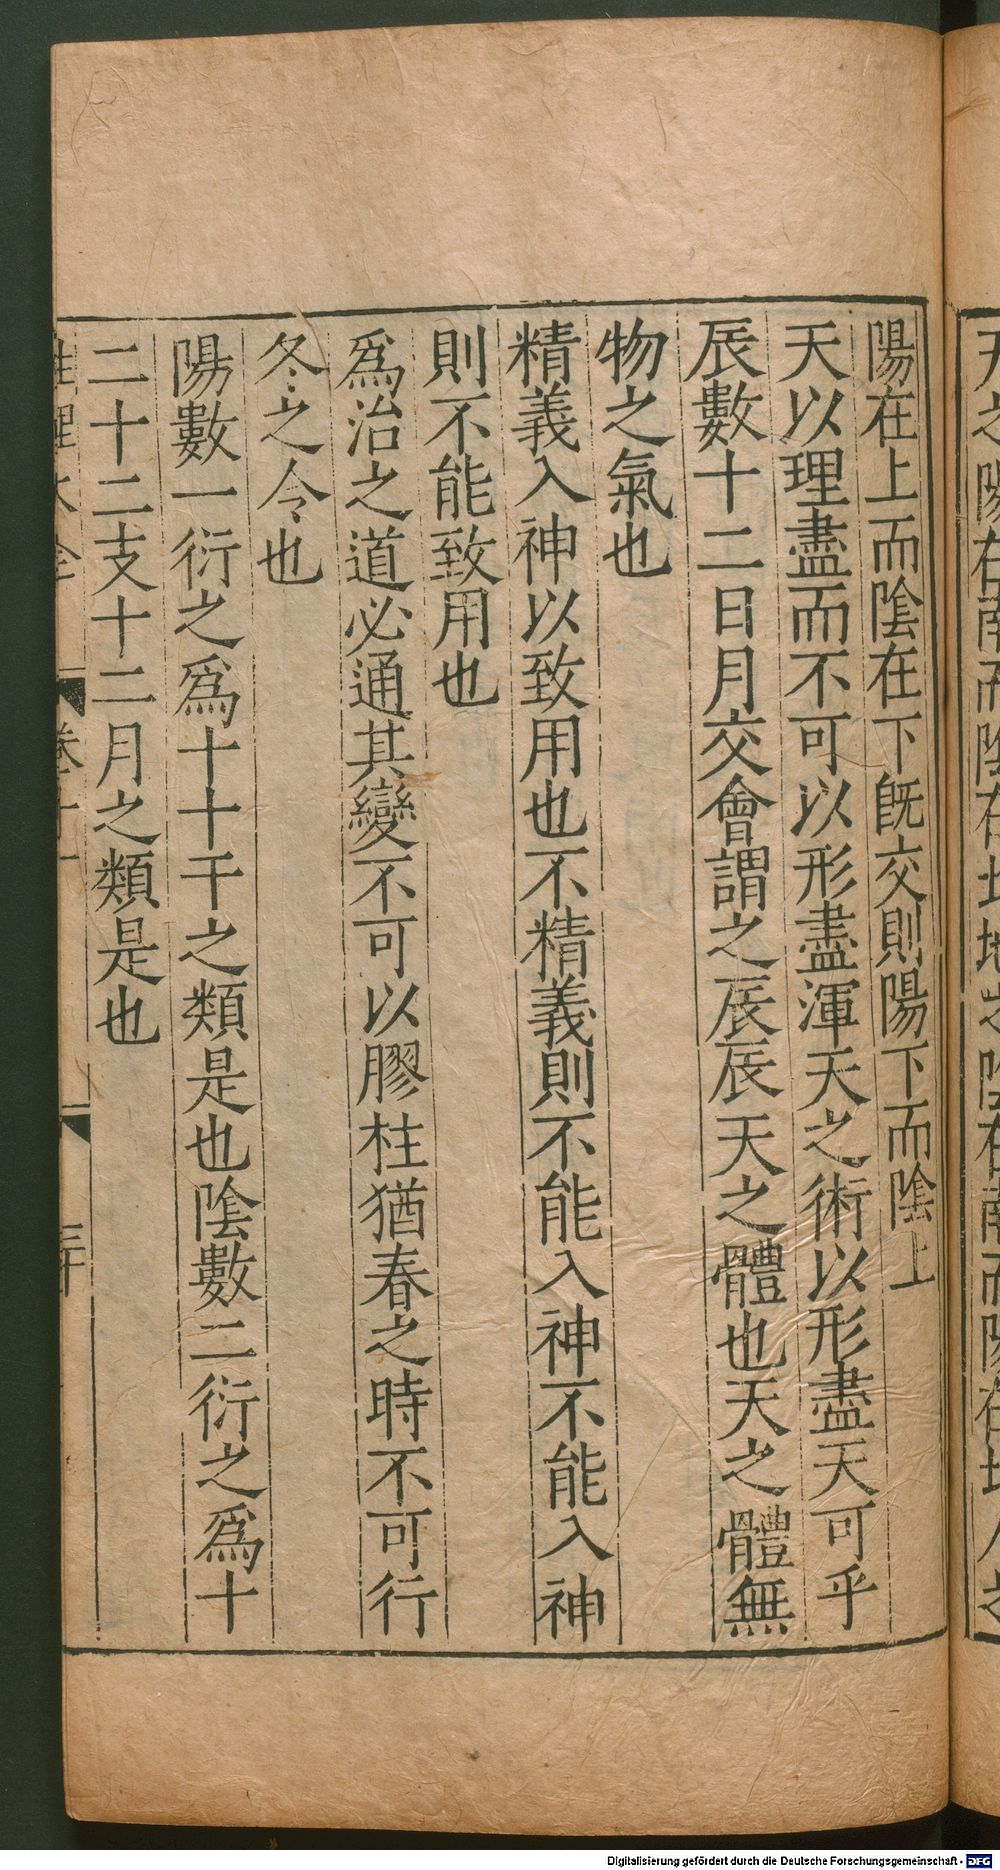 陽在上而陰在下旣交則陽下而陰上
天以理盡而不可以形盡渾天之術以形盡天可乎
辰數十二日月交會謂之辰辰天之體也天之體無
物之氣也
精義入神以致用也不精義則不能入神不能入神
則不能致用也
爲治之道必通其變不可以膠柱猶春之時不可行
冬之令也
陽數一衍之爲十十干之類是也陰數二衍之爲十
二十二支十二月之類是也
性理大全 卷十一 三十
Digitalisierung gefördert durch die Deutsche Forschungsgemeinschaft - DFG